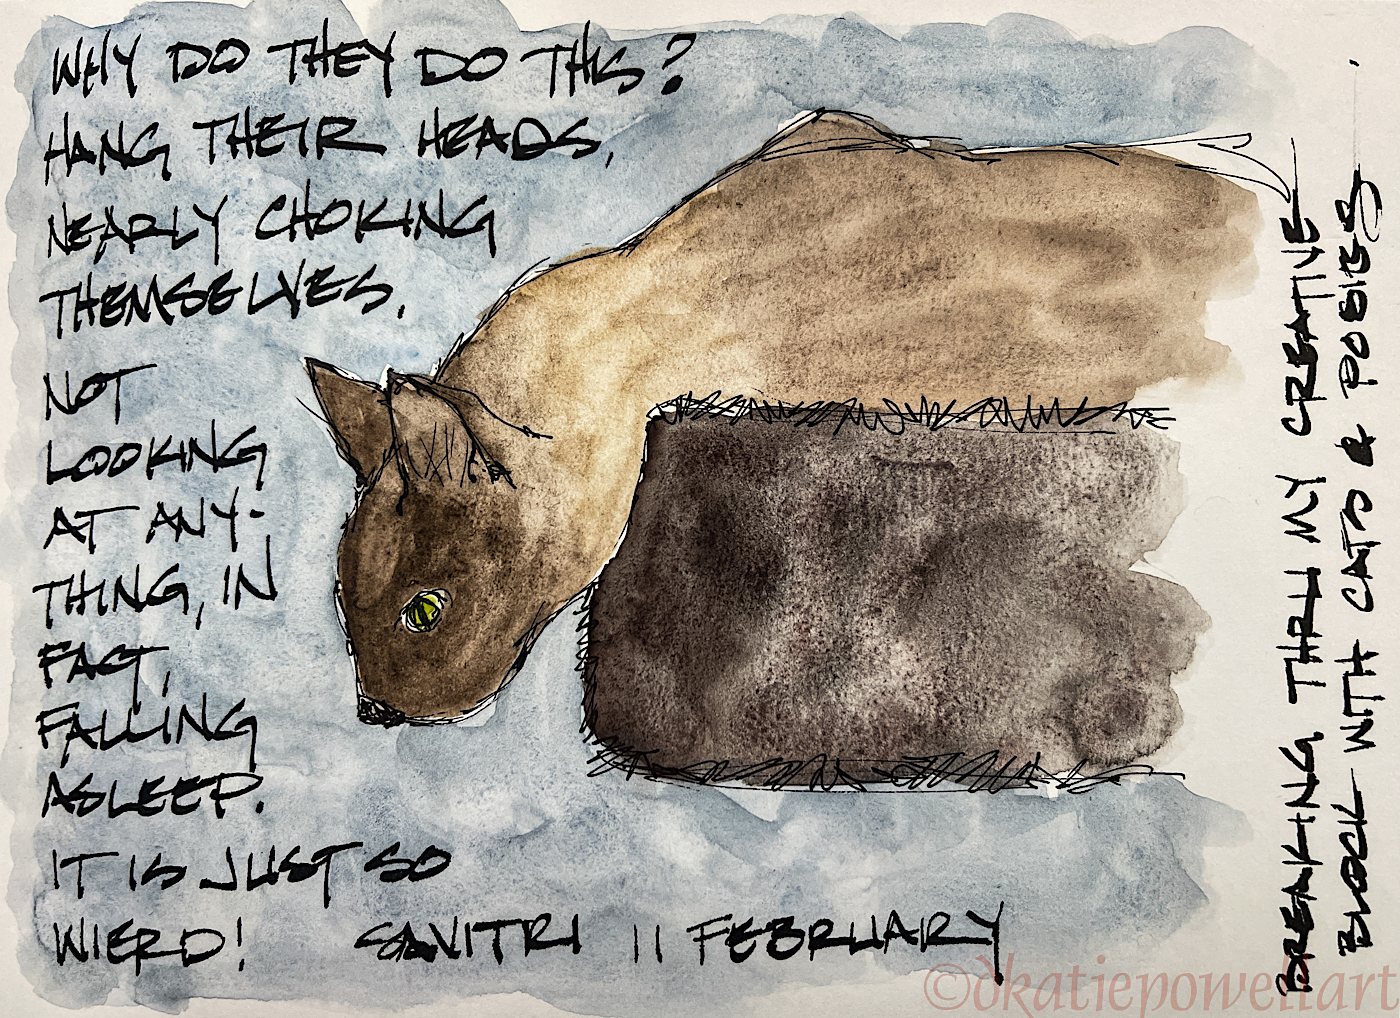 WHY DO THEY DO THIS?
HANG THEIR HEADS,
NEARLY CHOKING
THEMSELVES,
NOT
LOOKING
AT ANY-
THING, IN
FACT,
FALLING
ASLEEP.
IT IS JUST SO
WIERD!
SAVITRI 11 FEBRUARY
BREAKING THRU MY CREATIVE
BLOCK WITH CATS & POSIES.
©dkatiepowellart